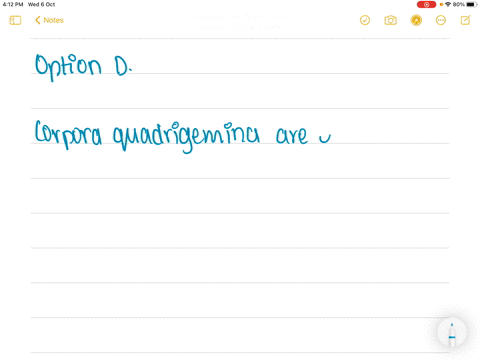 4:12 PM Wed 6 Oct
80%
Notes
Option D.
Corpora quadrigemina are